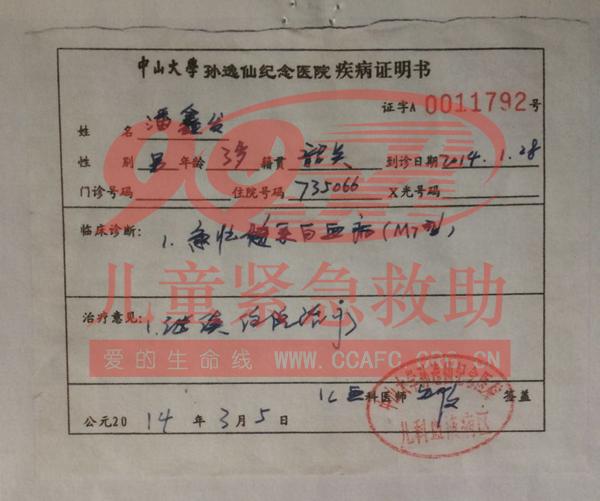 中山大學 孙逸仙纪念医院 疾病证明书
证字A 0011792号
姓 名 潘鑫
性 别 男 年龄 3岁 籍贯 韶关 到诊日期 2014.1.28
门诊号码 住院号码 735066 X光号码
临床诊断: 1. 急性髓系白血病(M7型)
儿童紧急救助
治疗意见: 1. 继续住院治疗
爱的生命线 WWW.CCAFC.ORG.CN
儿血科医师 签盖
中山大学孙逸仙纪念医院
儿科血液病区
公元2014年3月5日